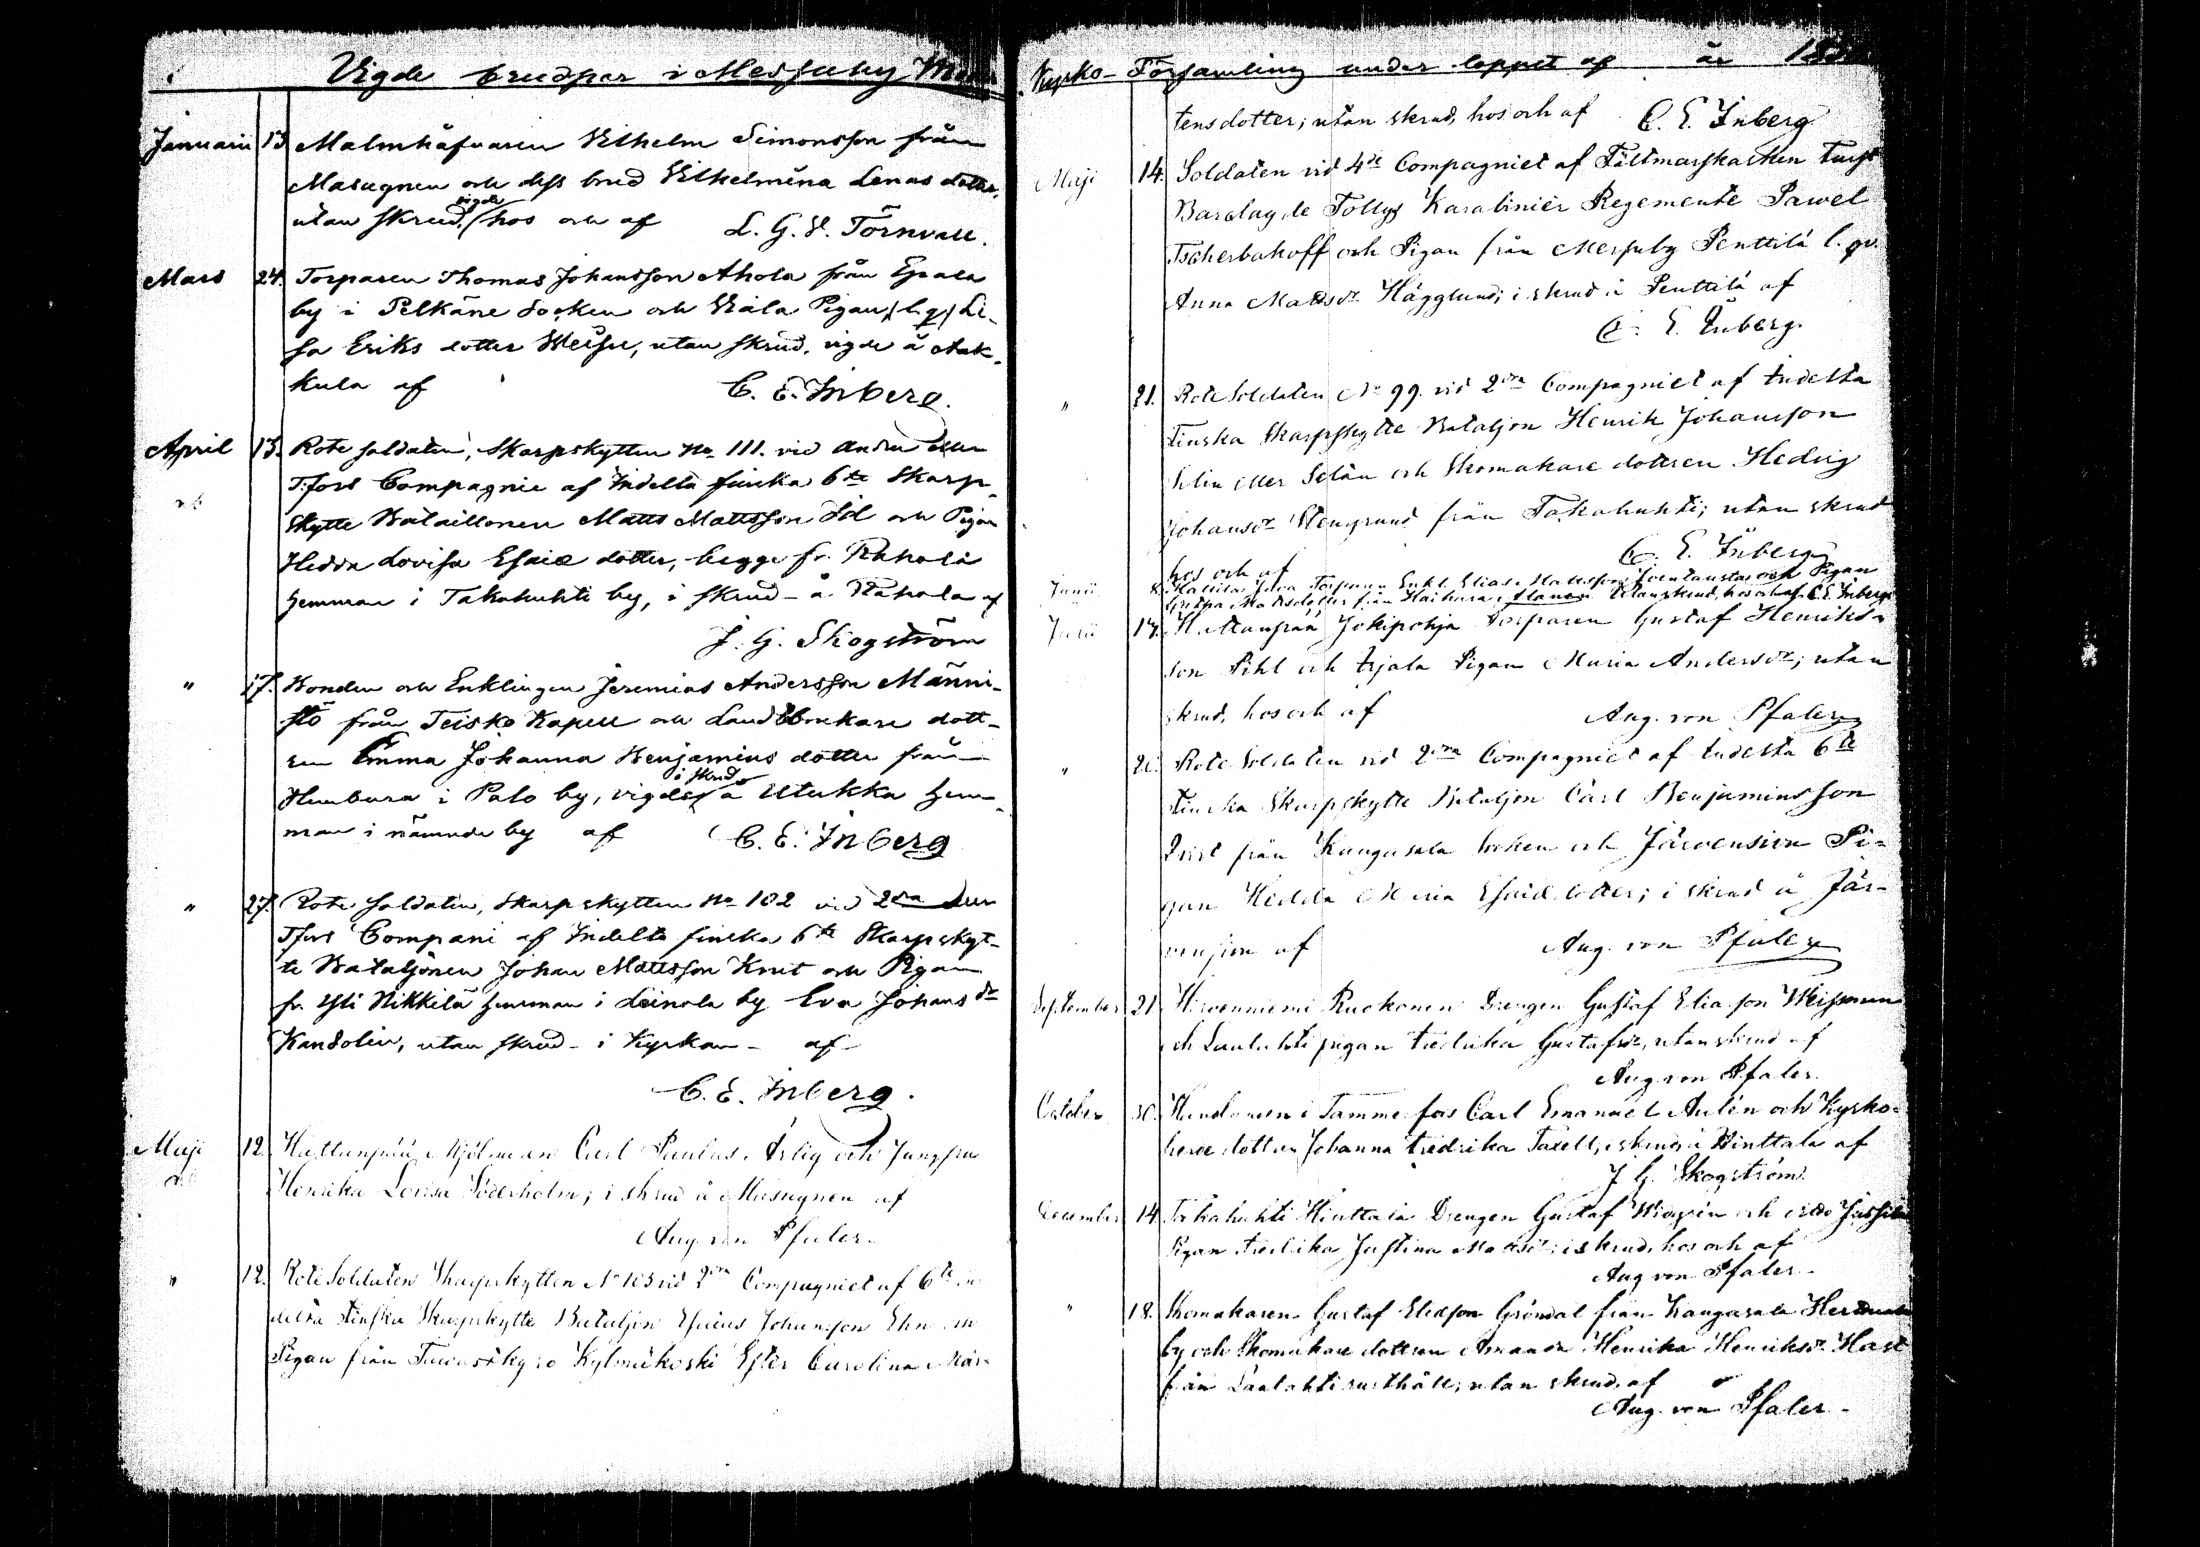 Vigde brudpar i Messuby Moder
Januarii 13 Malmhäfvaren Vilhelm Simonsson från
Masugnen och dess brud Vilhelmina Lenas dotter,
utan skrud, vigde hos och af L. G. V. Törnvall.
Mars 24. Torparen Thomas Johansson Ahola från Epaala
by i Pelkäne Socken och Viala Pigan (l. q) Li-
sa Eriks dotter utan skrud, vigde å Aak-
kula af C. E. Inberg.
April 13. Rote soldaten, Skarpskytten No 111. vid Andra eller
T:fors Compagnie af Indelta finska 6te Skarp-
skytte Bataillonen Matts Mattsson Id och Pigan
Hedda Lovisa Esaiæ dotter, begge fr.
hemman i Takahuhti by, i skrud - å af
J. G. Skogström
" 17. Bonden och Enklingen Jeremias Andersson Männi-
stö från Teisko Kapell och Landtbrukare dott-
ren Emma Johanna Benjamins dotter från
i Palo by, vigde i skrud å Utukka hem-
man i nämnde by af C. E. Inberg
" 27. Rote soldaten, Skarpskytten No 102 vid 2dra eller
Tfors Compani af Indelta finska 6te Skarpskyt-
te Bataljonen Johan Mattsson Knut och Pigan
fr. Yli Nikkilä hemman i Leinola by Eva Johans dr
Kandolin, utan skrud - i Kyrkan - af
C. E. Inberg.
Maji 12. Hattanpää Mjölnaren Carl Paulus och Jungfru
Henrika Lovisa Söderholm; i skrud å Masugnen af
Aug. von Pfaler.
" 12. Rote Soldaten Skarpskytten No 103 vid 2dra Compagniet af 6te in
delta Finska Skarpskytte Bataljon Esaias Johansson
Pigan från Tavastkyro Kylmäkoski Ester Carolina Mår-
Kyrko-Församling under loppet af år
tensdotter; utan skrud, hos och af C. E. Inberg
Maji 14. Soldaten vid 4de Compagniet af Fältmarskalken Furst
Barclay de Tollys Karabinier Regemente Pawel
Tscherbakoff och Pigan från Messuby Penttilä l. qv.
Anna Mattsdr Hägglund; i skrud å Penttilä af
C. E. Inberg.
" 21. Rote Soldaten No 99. vid 2dra Compagniet af Indelta
Finska Skarpskytte Bataljon Henrik Johansson
Selin eller Selén och Skomakare dottren Hedvig
Johansdr Stengrund från Takahuhti; utan skrud
hos och af C. E. Inberg
Junii Torparen Enkl. Elias Mattsson och Pigan
Mattsdotter från Haihara utan skrud, hos och af C. E. Inberg
Julii 17. Hattanpää Jokipohja Torparen Gustaf Henriks-
son Pihl och Pigan Maria Andersdr; utan
skrud, hos och af Aug. von Pfaler
" Rote Soldaten vid 2dra Compagniet af Indelta 6te
Finska Skarpskytte Bataljon Carl Benjaminsson
från Kangasala Socken och Järvensivu Pi-
gan Hedda Maria Esaiædotter; i skrud å Jär-
vensivu af Aug. von Pfaler
September 21. Hirvenniemi Ruokonen Drengen Gustaf Eliasson
och Laulahti pigan Fredrika Gustafsdr, utan skrud af
Aug. von Pfaler.
October 30. Handlanden i Tammerfors Carl Emanuel Aulén och Kyrko-
herde dottren Johanna Fredrika Taxell, i skrud å Hinttala af
J. G. Skogström.
December 14. Takahuhti Hinttala Drengen Gustaf och
Pigan Fredrika Justina Mattsdr; i skrud, hos och af
Aug von Pfaler.
" 18. Skomakaren Gustaf Eliasson Gröndal från Kangasala
by och Skomakare dottren Amanda Henrika Henriksdr Hast
från Laulahti rusthåll; utan skrud, af
Aug. von Pfaler.